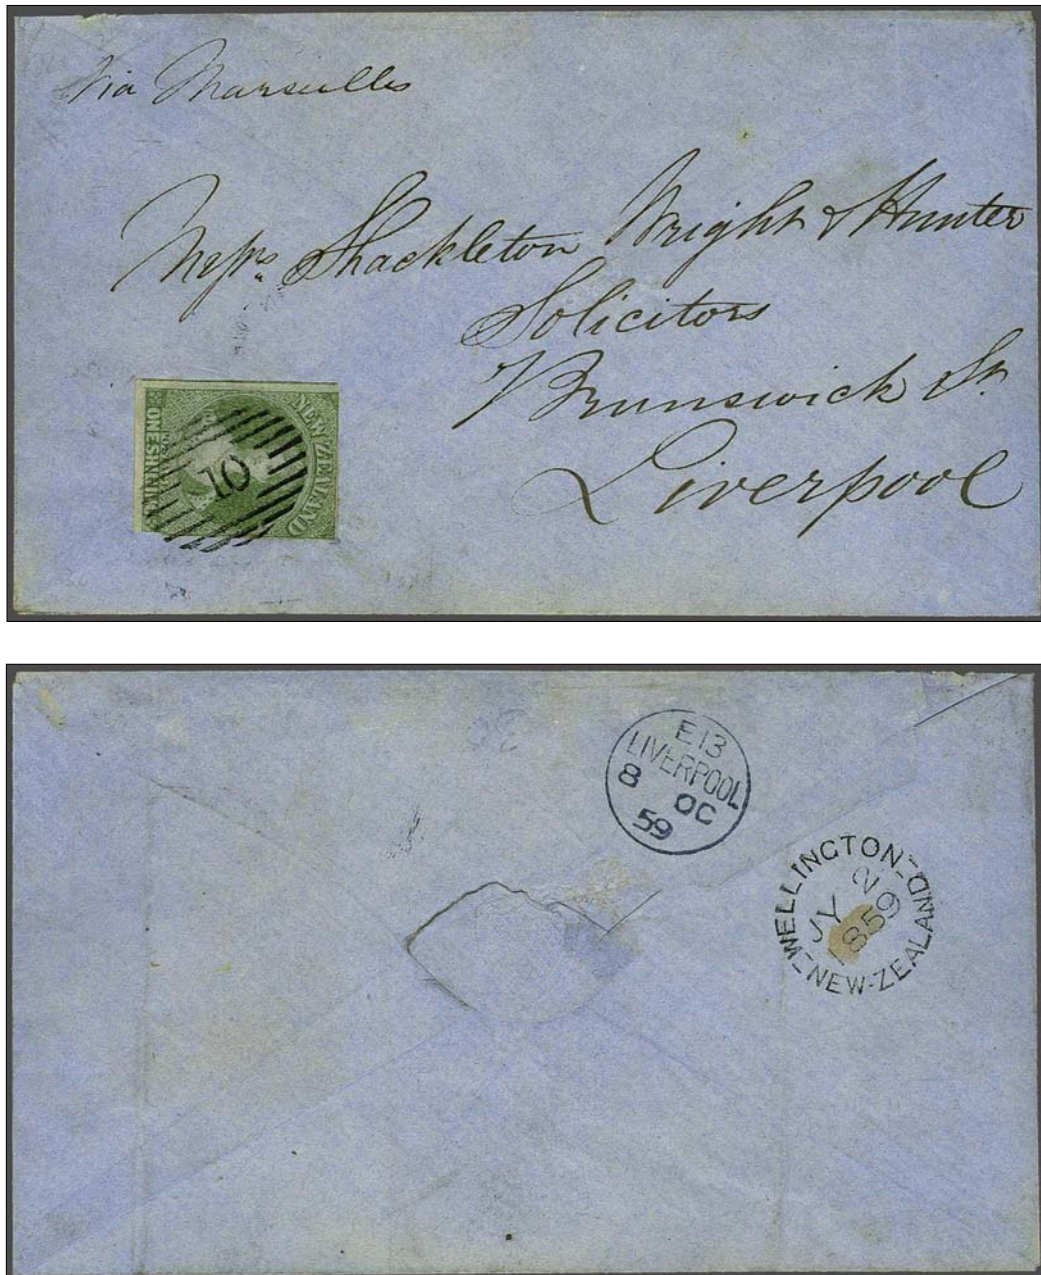 Via Marseilles
Messrs. Shackleton Wright & Hunter
Solicitors
Brunswick St.
Liverpool
NEW ZEALAND
ONE SHILLING
10
E 13
LIVERPOOL
8 OC
59
WELLINGTON
NEW-ZEALAND
JY 2
1859